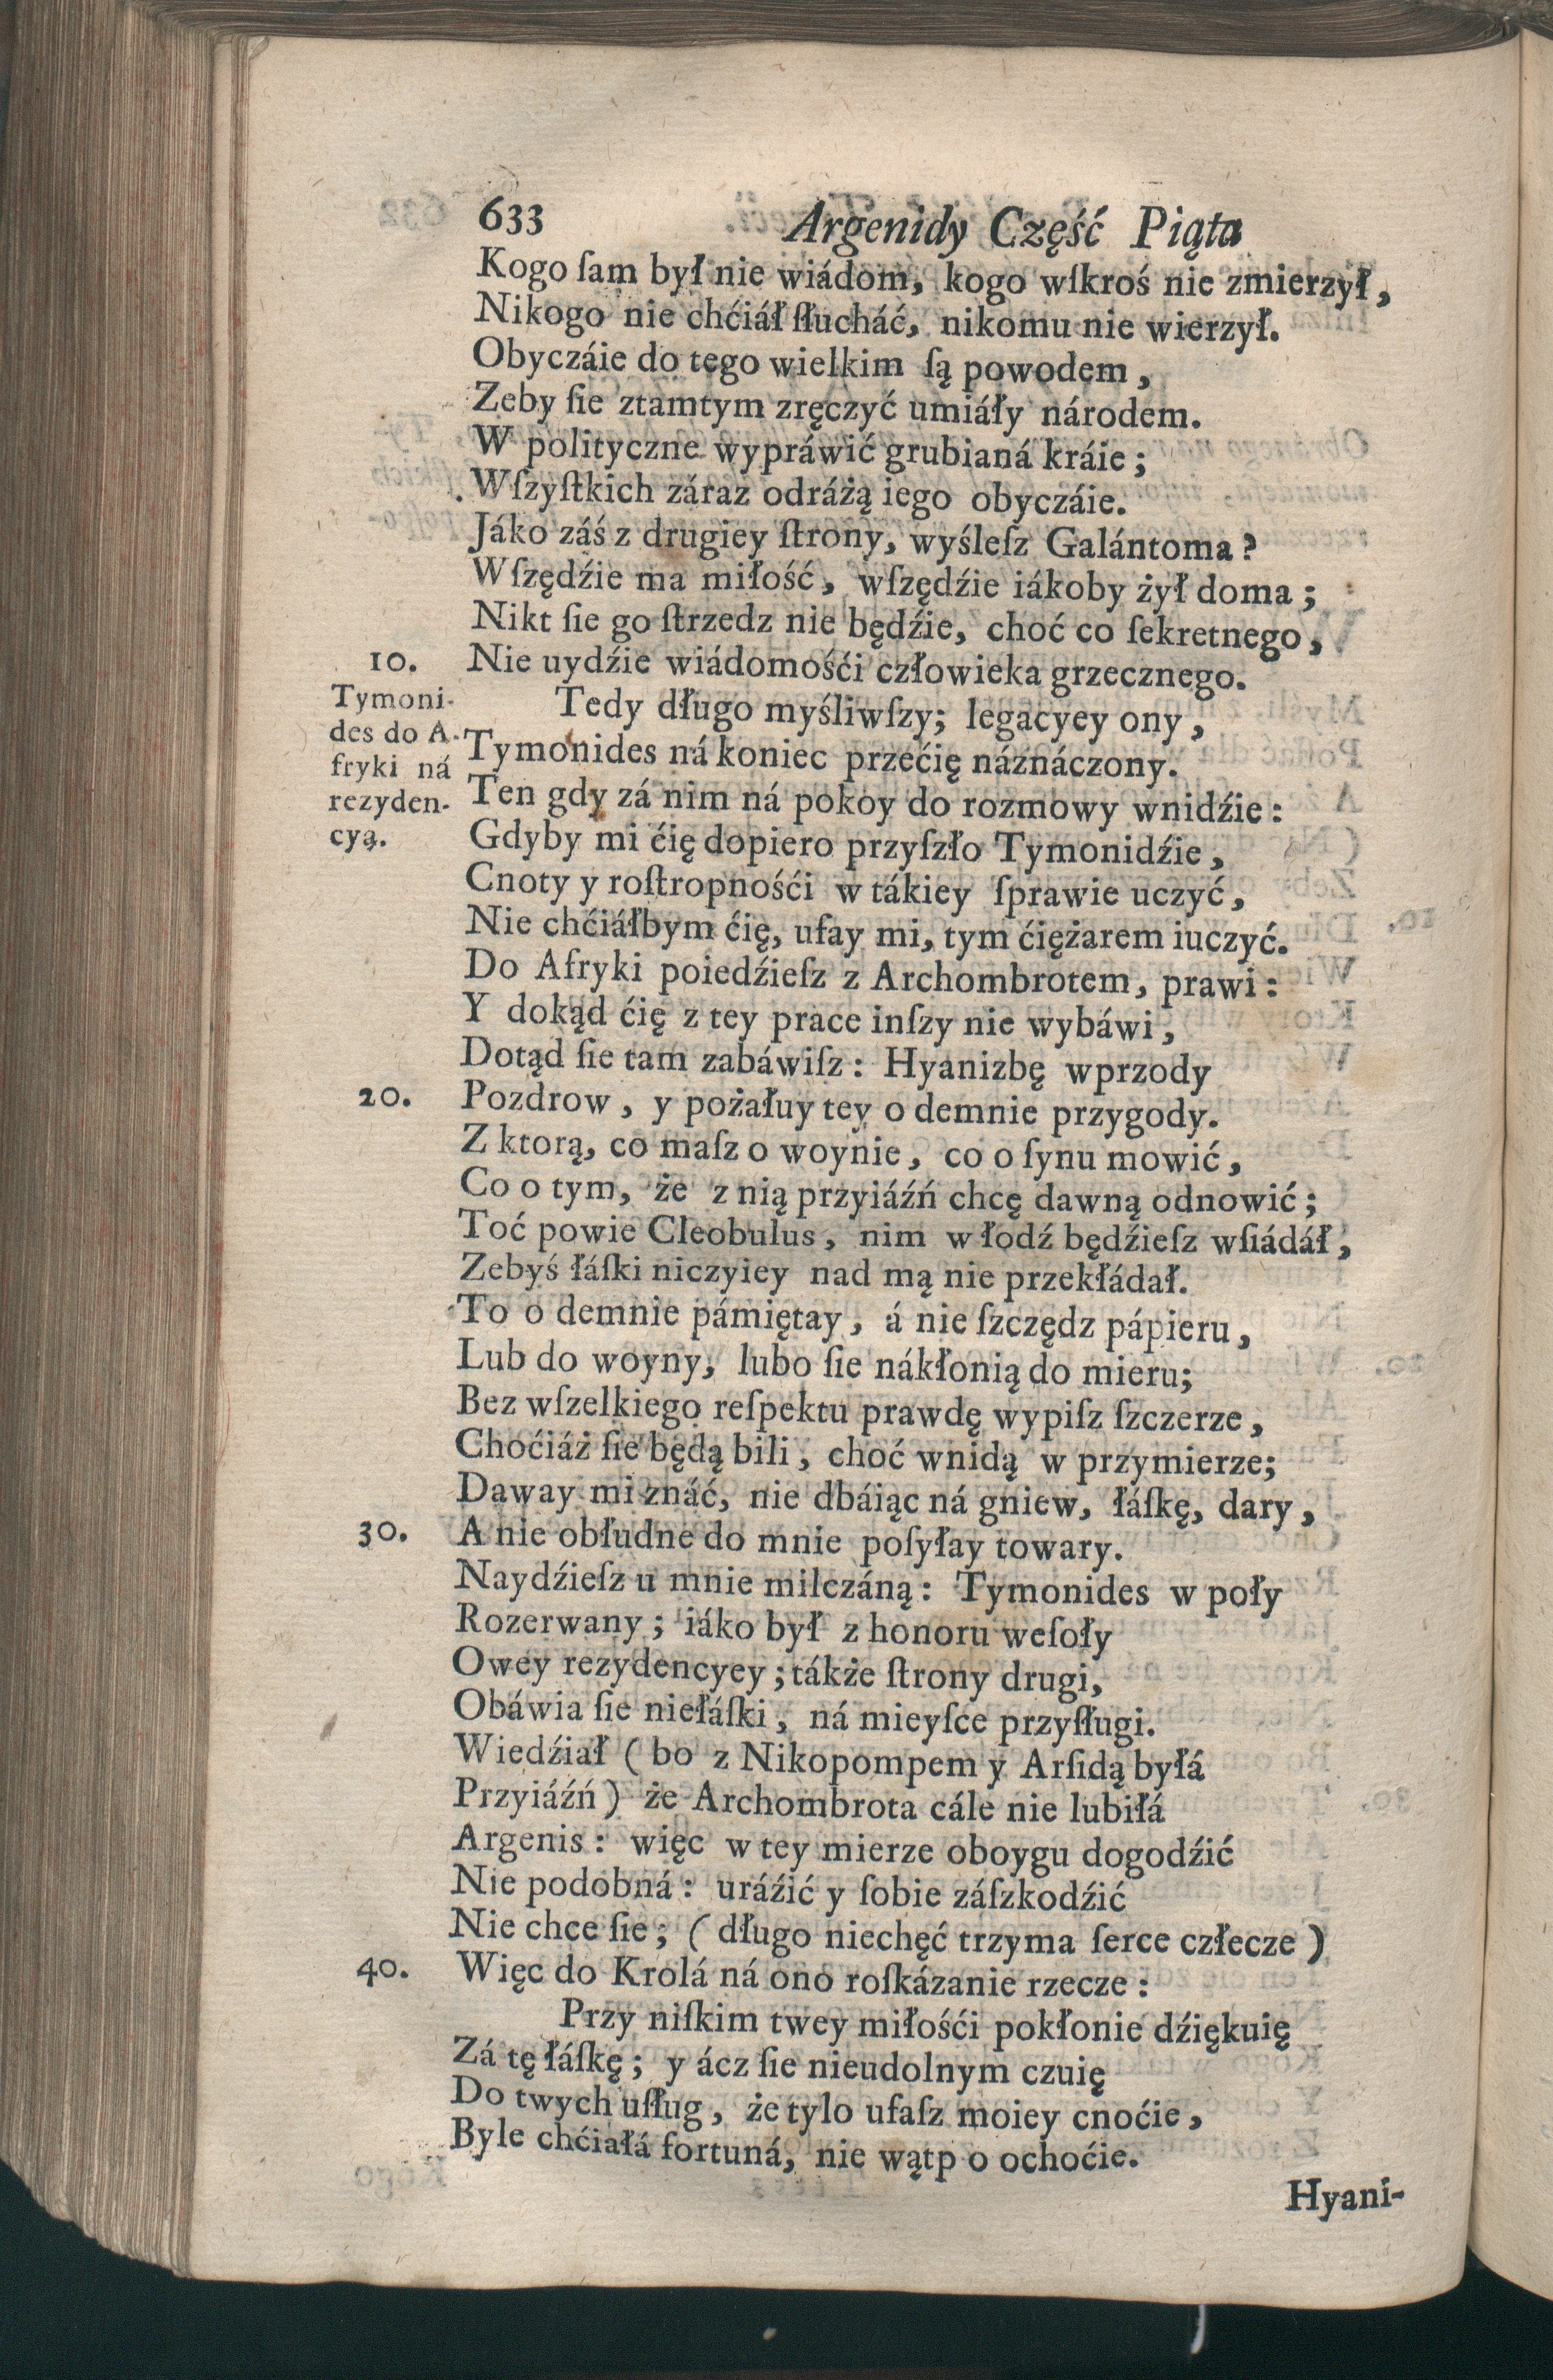 633 Argenidy Część Piąta
Kogo ſam był nie wiádom, kogo wſkroś nie zmierzył,
Nikogo nie chćiáł ſłucháć, nikomu nie wierzył.
Obyczáie do tego wielkim ſą powodem,
Zeby ſie ztamtym zręczyć umiáły národem.
W polityczne wypráwić grubianá kráie;
Wſzyſtkich záraz odráżą iego obyczáie.
Jáko záś z drugiey ſtrony, wyśleſz Galántoma?
Wſzędźie ma miłość, wſzędźie iákoby żył doma;
Nikt ſie go ſtrzedz nie będźie, choć co ſekretnego,
10. Nie uydźie wiádomośći człowieka grzecznego.
Tymoni-
des do A-
fryki ná
rezyden-
cyą.
Tedy długo myśliwſzy; legacyey ony,
Tymonides ná koniec przećię náznáczony.
Ten gdy zá nim ná pokoy do rozmowy wnidźie:
Gdyby mi ćię dopiero przyſzło Tymonidźie,
Cnoty y roſtropnośći w tákiey ſprawie uczyć,
Nie chćiáłbym ćię, ufay mi, tym ćiężarem iuczyć.
Do Afryki poiedźieſz z Archombrotem, prawi:
Y dokąd ćię z tey prace inſzy nie wybáwi,
Dotąd ſie tam zabáwiſz: Hyanizbę wprzody
20. Pozdrow, y pożałuy tey o demnie przygody.
Z ktorą, co maſz o woynie, co o ſynu mowić,
Co o tym, że z nią przyiáźń chcę dawną odnowić;
Toć powie Cleobulus, nim w łodź będźieſz wſiádáł,
Zebyś łáſki niczyiey nad mą nie przekłádał.
To o demnie pámiętay, á nie ſzczędz pápieru,
Lub do woyny, lubo ſie nákłonią do mieru;
Bez wſzelkiego reſpektu prawdę wypiſz ſzczerze,
Choćiáż ſie będą bili, choć wnidą w przymierze;
Daway mi znáć, nie dbáiąc ná gniew, łáſkę, dary,
30. A nie obłudne do mnie poſyłay towary.
Naydźieſz u mnie milczáną: Tymonides w poły
Rozerwany; iáko był z honoru weſoły
Owey rezydencyey; tákże ſtrony drugi,
Obáwia ſie niełáſki, ná mieyſce przyſługi.
Wiedźiał (bo z Nikopompem y Arſidą byłá
Przyiáźń) że Archombrota cále nie lubiłá
Argenis: więc w tey mierze oboygu dogodźić
Nie podobná: uráźić y ſobie záſzkodźić
Nie chce ſie; (długo niechęć trzyma ſerce człecze)
40. Więc do Krolá ná ono roſkázanie rzecze:
Przy niſkim twey miłośći pokłonie dźiękuię
Zá tę łáſkę; y ácz ſie nieudolnym czuię
Do twych uſług, że tylo ufaſz moiey cnoćie,
Byle chćiałá fortuná, nie wątp o ochoćie.
Hyani-